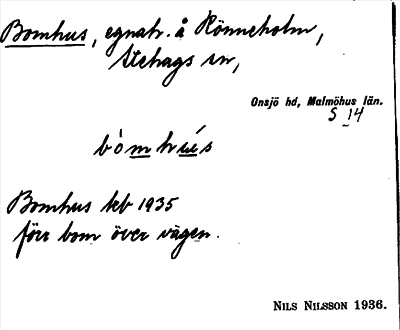 Bomhus, egnatr. å Rönneholm,
Stehags sn,
Onsjö hd, Malmöhus län.
S 14
bòmhúś
Bomhus kb 1935
förr bom över vägen.
NILS NILSSON 1936.